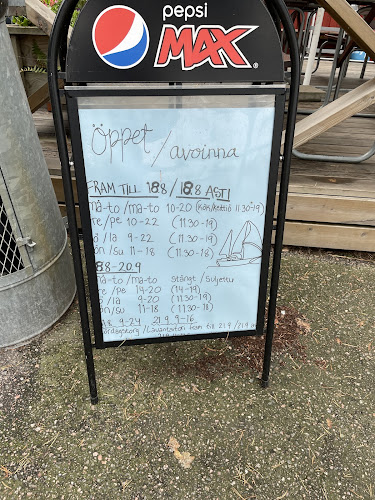 pepsi
MAX
Öppet / avoinna
FRAM TILL 18.8 / 18.8 ASTI
må-to / ma-to 10-20 (Kök/keittiö 11.30-19)
fre / pe 10-22 (11.30-19)
lö / la 9-22 (11.30-19)
sön / su 11-18 (11.30-18)
18.8-20.9
må-to / ma-to Stängt / Suljettu
fre / pe 14-20 (14-19)
lö / la 9-20 (11.30-19)
sön / su 11-18 (11.30-18)
9-24 21.9 9-16
/ Lauantaiton from till 21.9 / 21.9